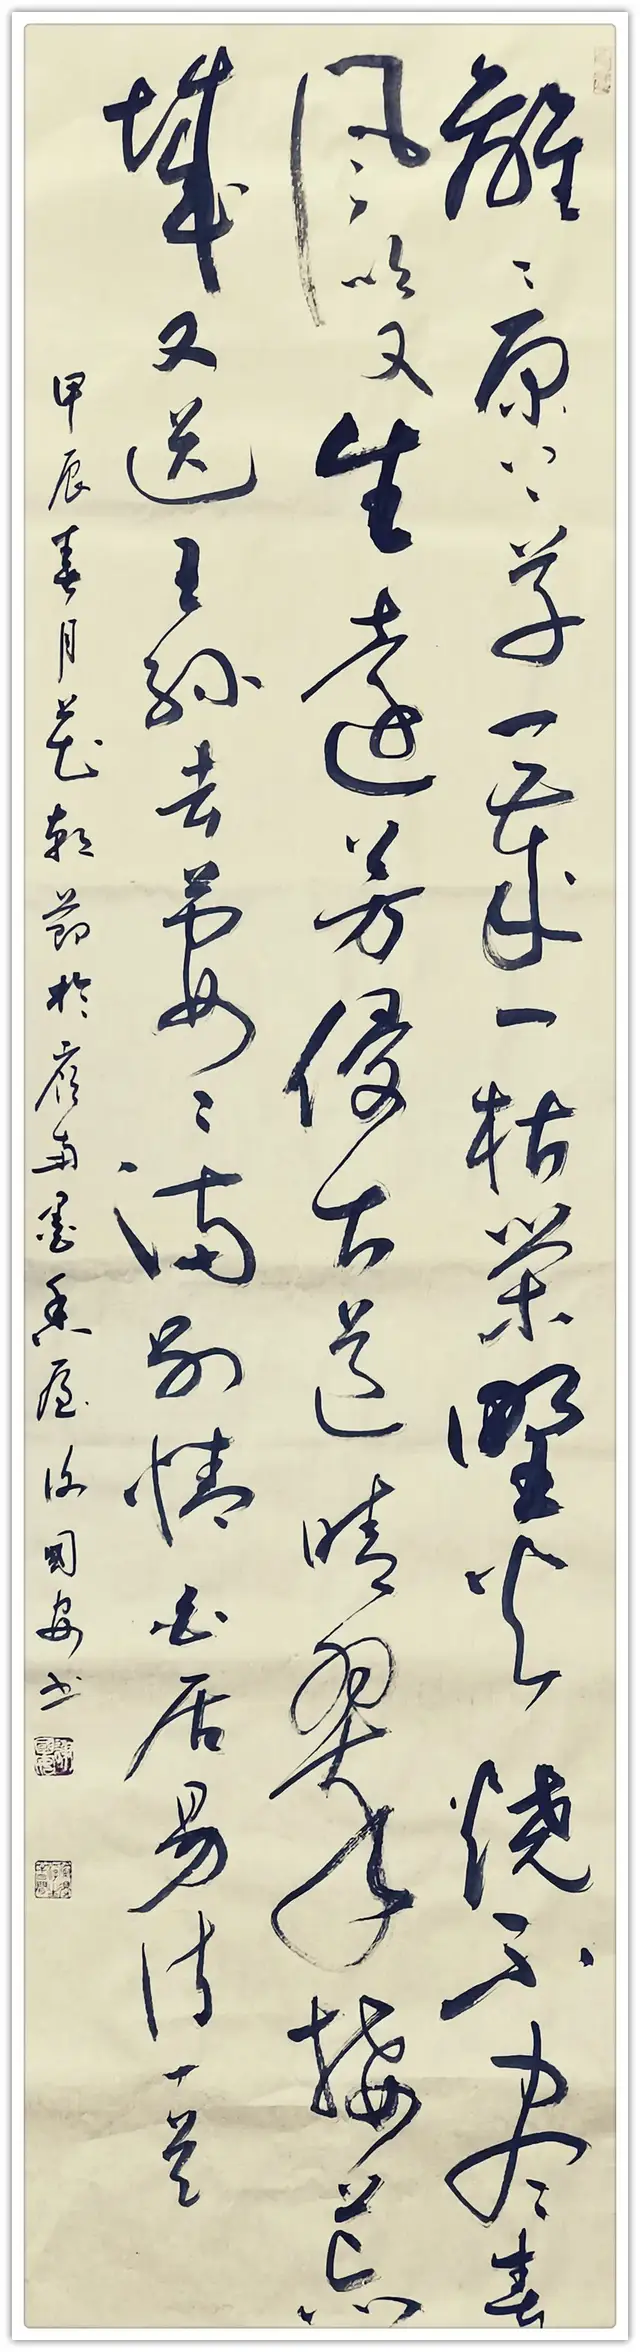 離〻原上草一歲一枯榮野火燒不盡春
風吹又生遠芳侵古道晴翠接荒
城又送王孫去萋〻滿別情白居易詩一首
甲辰春月花朝節於南墨香屋國安書